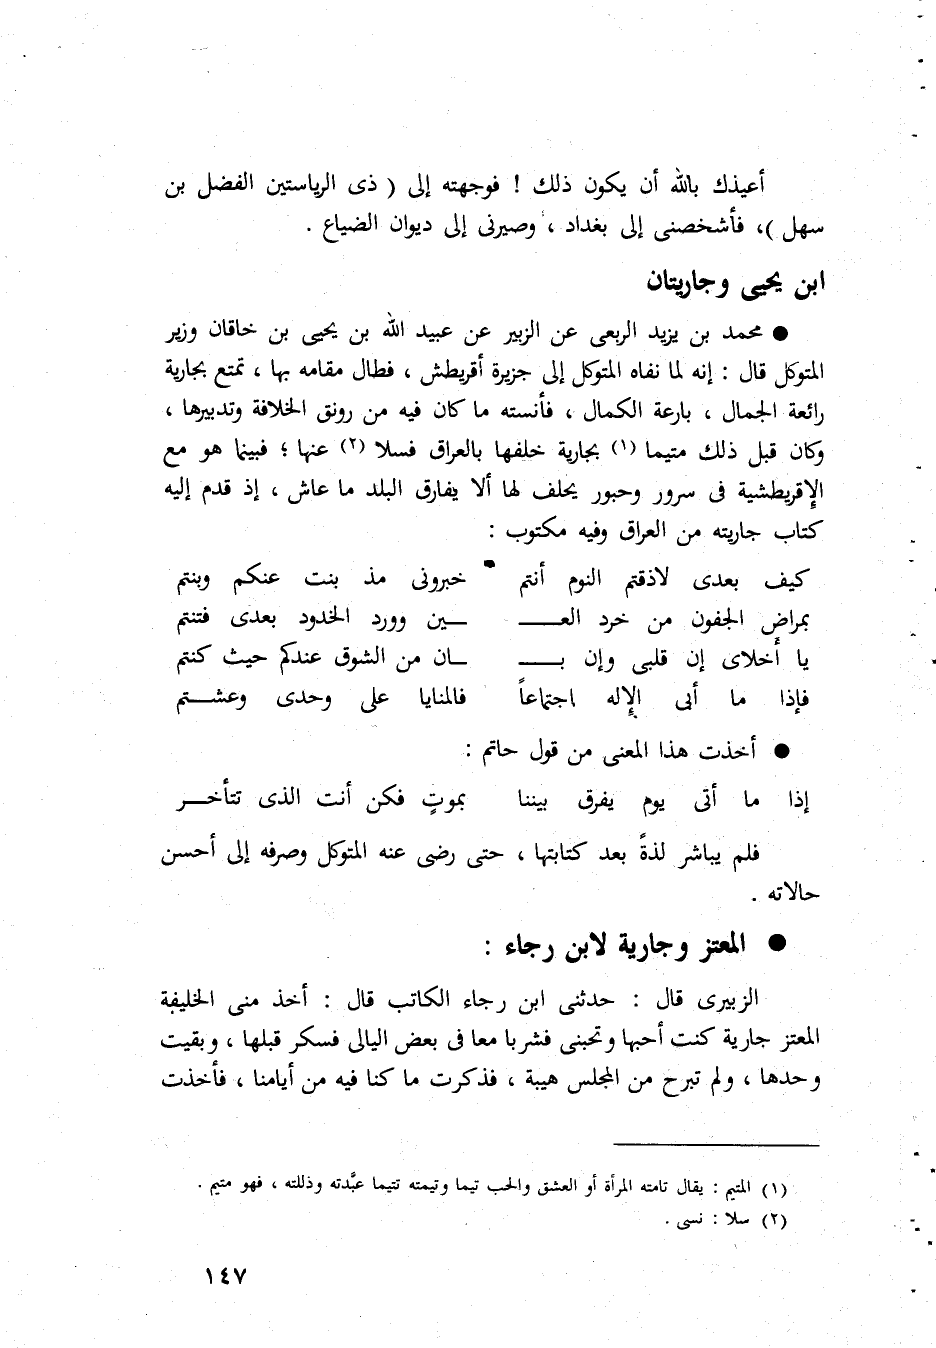 أعيذك بالله أن يكون ذلك ! فوجهته إلى ( ذى الرياستين الفضل بن
سهل )، فأشخصنى إلى بغداد ، وصيرنى إلى ديوان الضياع .
ابن يحيى وجاريتان
● محمد بن يزيد الربعى عن الزبير عن عبيد الله بن يحيى بن خاقان وزير
المتوكل قال : إنه لما نفاه المتوكل إلى جزيرة أقريطش ، فطال مقامه بها ، تمتع بجارية
رائعة الجمال ، بارعة الكمال ، فأنسته ما كان فيه من رونق الخلافة وتدبيرها ،
وكان قبل ذلك متيما (١) بجارية خلفها بالعراق فسلا (٢) عنها ؛ فبينما هو مع
الإقريطشية فى سرور وحبور يحلف لها ألا يفارق البلد ما عاش ، إذ قدم إليه
كتاب جاريته من العراق وفيه مكتوب :
كيف بعدى لاذقتم النوم أنتم خبرونى مذ بنت عنكم وبنتم
بمراض الجفون من خرد العـــ ــين وورد الخدود بعدى فتنتم
يا أخلاى إن قلبى وإن بـــ ــان من الشوق عندكم حيث كنتم
فإذا ما أبى الإله اجتماعاً فالمنايا على وحدى وعشـــتم
● أخذت هذا المعنى من قول حاتم :
إذا ما أتى يوم يفرق بيننا بموتٍ فكن أنت الذى تتأخـــر
فلم يباشر لذةً بعد كتابتها ، حتى رضى عنه المتوكل وصرفه إلى أحسن
حالاته .
● المعتز وجارية لابن رجاء :
الزبيرى قال : حدثنى ابن رجاء الكاتب قال : أخذ منى الخليفة
المعتز جارية كنت أحبها وتحبنى فشربا معا فى بعض اليالى فسكر قبلها ، وبقيت
وحدها ، ولم تبرح من المجلس هيبة ، فذكرت ما كنا فيه من أيامنا ، فأخذت
(١) المتيم : يقال تامته المرأة أو العشق والحب تيما وتيمته تتيما عبَّدته وذللته ، فهو متيم .
(٢) سلا : نسى .
١٤٧